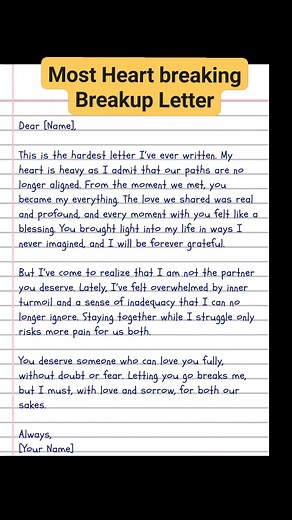 Most Heart breaking
Breakup Letter
Dear [Name],
This is the hardest letter I've ever written. My
heart is heavy as I admit that our paths are no
longer aligned. From the moment we met, you
became my everything. The love we shared was real
and profound, and every moment with you felt like a
blessing. You brought light into my life in ways I
never imagined, and I will be forever grateful.
But I've come to realize that I am not the partner
you deserve. Lately, I've felt overwhelmed by inner
turmoil and a sense of inadequacy that I can no
longer ignore. Staying together while I struggle only
risks more pain for us both.
You deserve someone who can love you fully,
without doubt or fear. Letting you go breaks me,
but I must, with love and sorrow, for both our
sakes.
Always,
[Your Name]